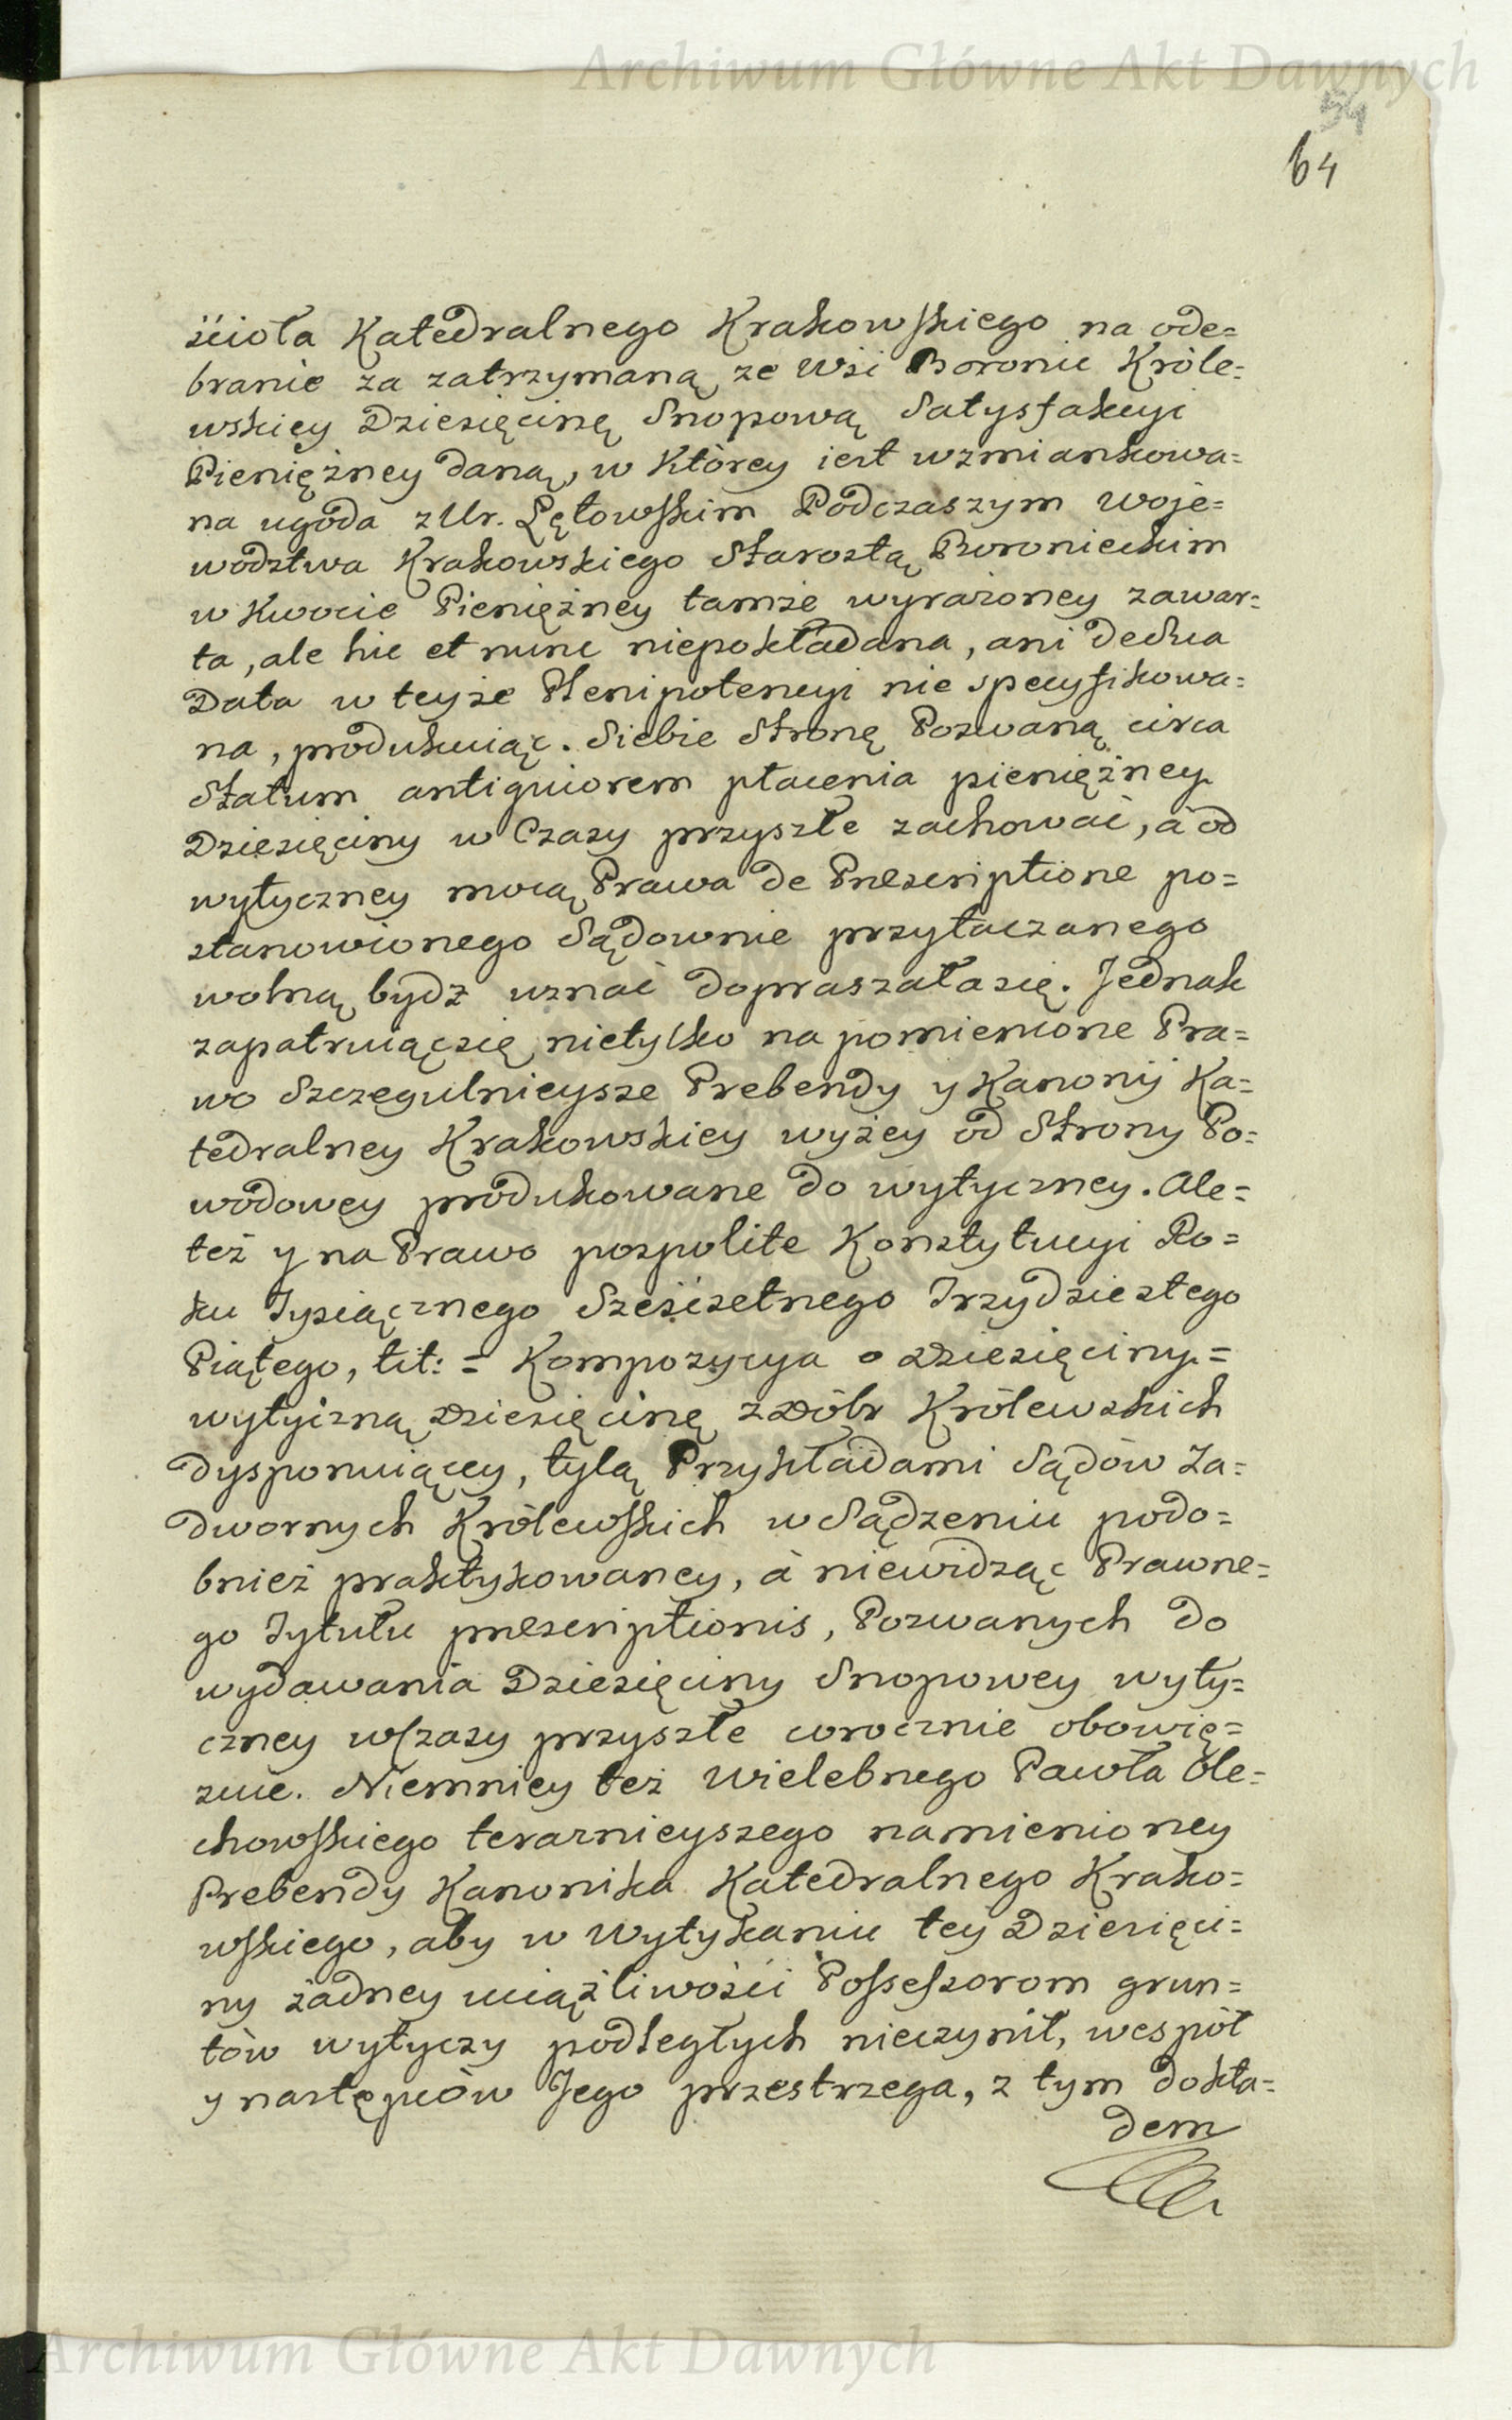 Archiwum Główne Akt Dawnych
54
64
ścioła Katedralnego Krakowskiego na ode=
branie za zatrzymaną ze Wsi Boronic Króle=
wskiey Dziesięcinę Snopową Satysfakcyi
Pieniężney daną, w Którey iest wzmiankowa=
na ugoda z Ur. Lętowskim Podczaszym Woje=
wodztwa Krakowskiego Starostą Boronieckim
w Kwocie Pieniężney tamże wyrażoney zawar=
ta, ale hic et nunc niepokładana, ani dedua
Data w teyże Plenipotencyi nie specyfikowa=
na, produkuiąc. Siebie Stronę Pozwaną circa
Statum antiquiorem płacenia pieniężney
Dziesięciny w Czasy przyszłe zachować, à od
wytyczney mocą Prawa de Præscriptione po=
stanowionego Sądownie przytaczanego
wolną bydz uznać dopraszała się. Jednak
zapatruiąc się nietylko na pomienione Pra=
wo Szczegulnieysze Prebendy y Kanonij Ka=
tedralney Krakowskiey wyżey od Strony Po=
wodowey produkowane do wytyczney. Ale=
też y na Prawo pospolite Konstytucyi Ro=
ku Tysiącznego Sześćsetnego Trzydziestego
Piątego, tit: = Kompozycya o Dziesięciny =
wytyczną Dziesięcinę z Dóbr Królewskich
dysponuiącey, tylą Przykładami Sądów Za=
dwornych Królewskich w Sądzeniu podo=
bnież praktykowaney, à niewidząc Prawne=
go Tytułu præscriptionis, Pozwanych do
wydawania Dziesięciny Snopowey wyty=
czney w Czasy przyszłe corocznie obowię=
zuie. Niemniey też Wielebnego Pawła Ole=
chowskiego terażnieyszego namienioney
Prebendy Kanonika Katedralnego Krako=
wskiego, aby w Wytykaniu tey Dziesięci=
ny żadney uciążliwości Possessorom grun=
tów wytyczy podległych nieczynił, wespół
y następców Jego przestrzega, z tym dokła=
dem
Archiwum Główne Akt Dawnych